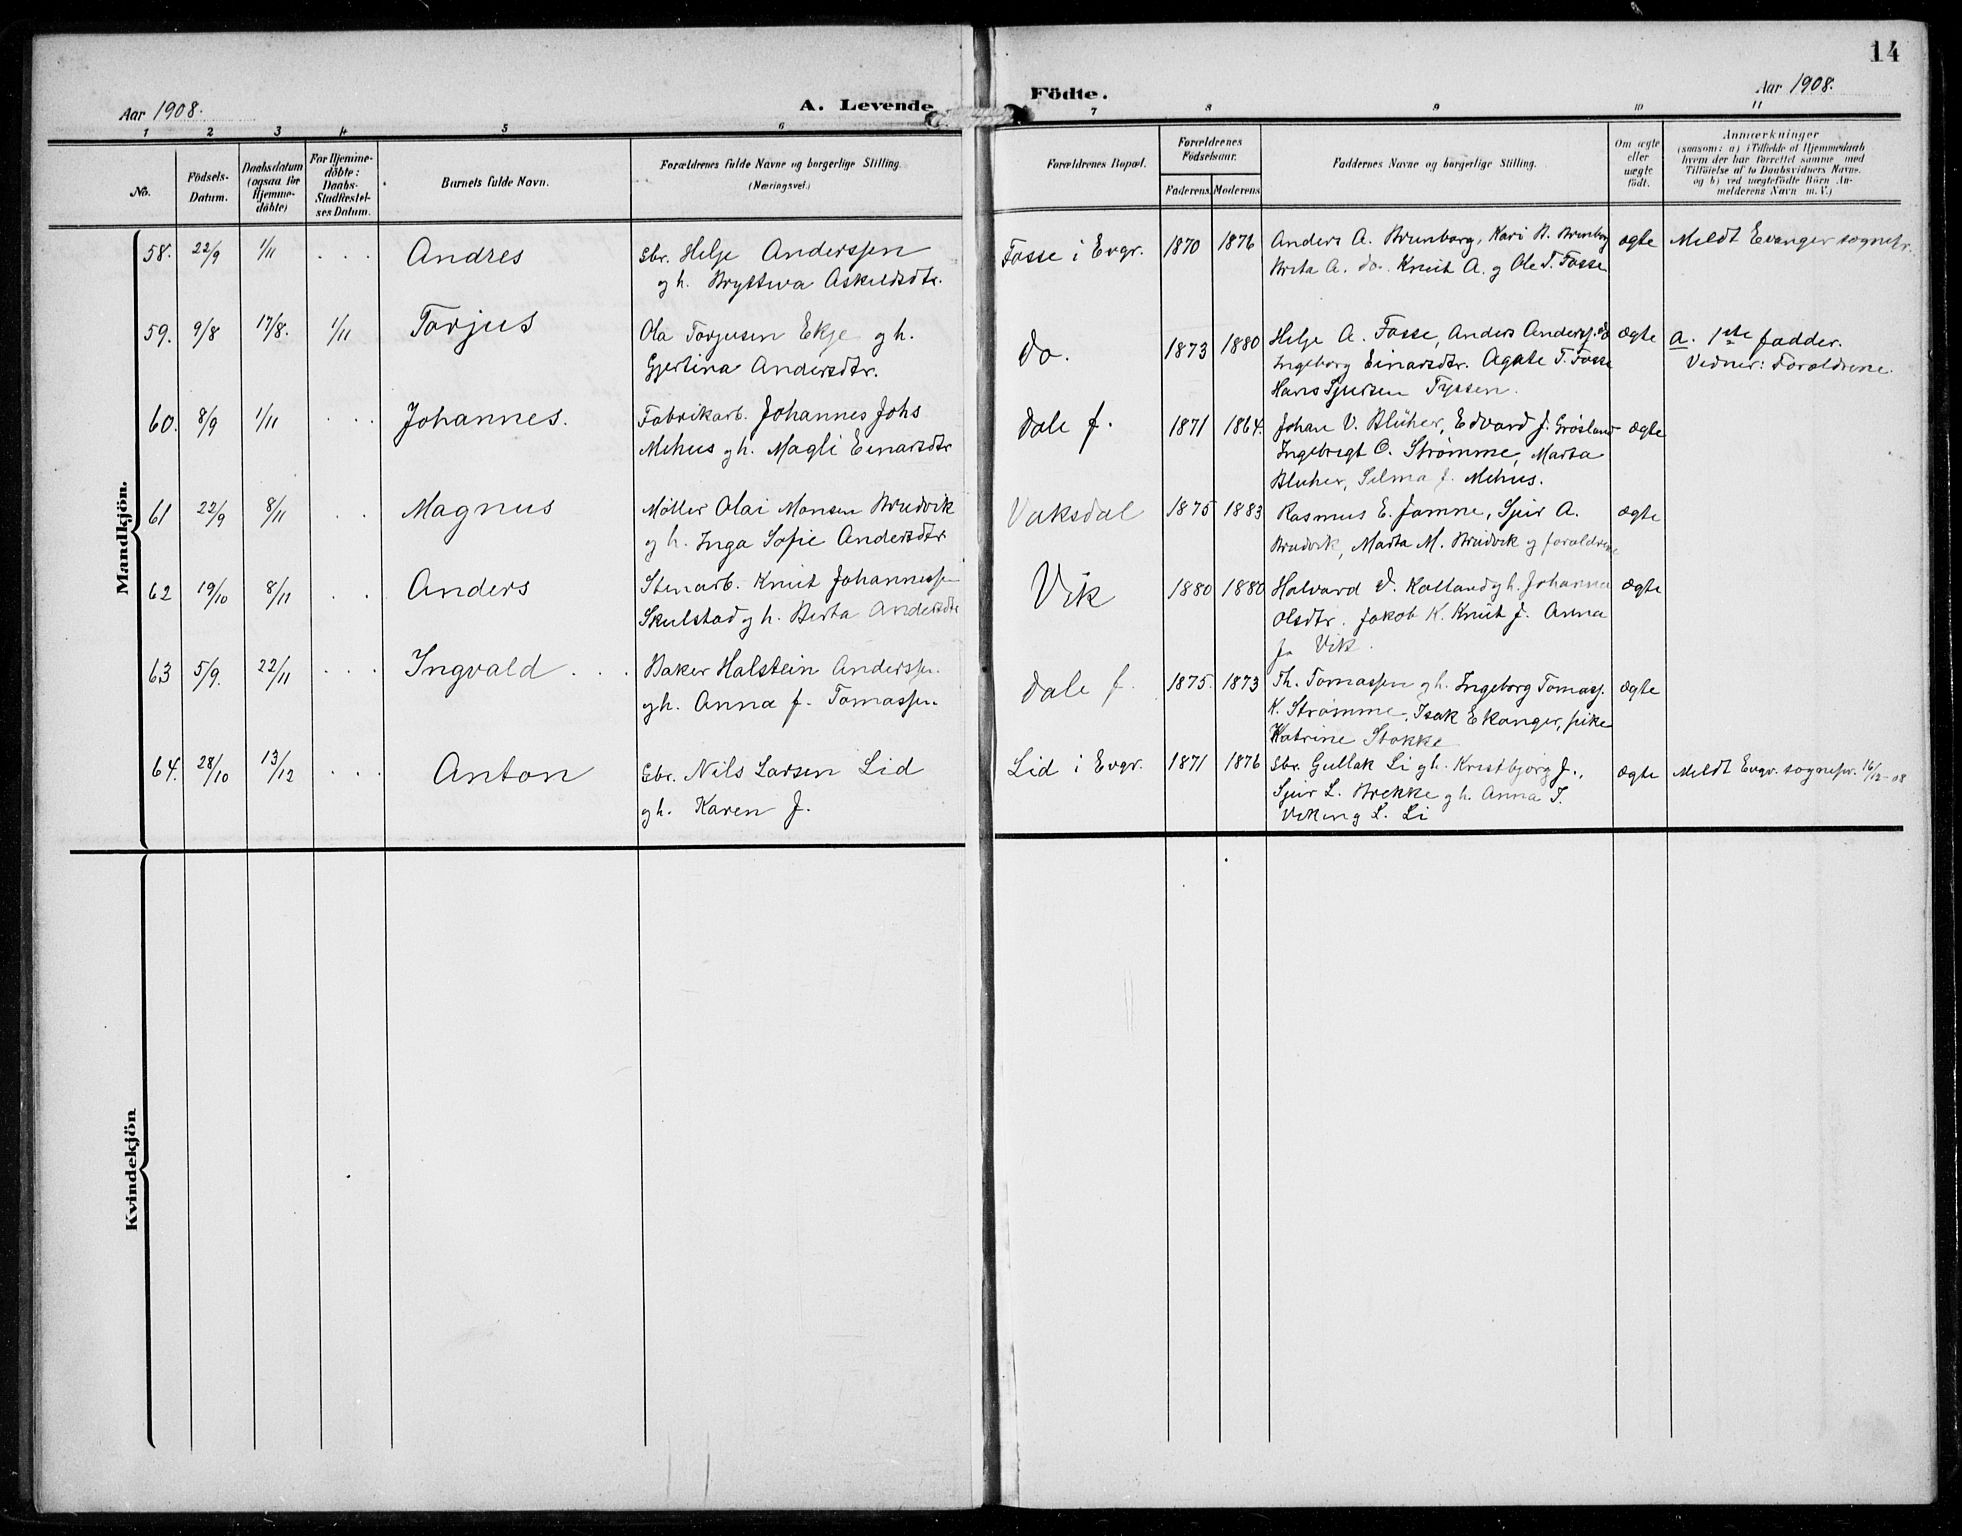 14
Aar 1908.
A. Levende
Födte.
Aar 1908.
1 2 3 4 5 6 7 8 9 10 11
No.
Födsels-
Datum.
Daabsdatum
(ogsaa for
Hjemme-
döbte)
For Hjemme-
döbte:
Daabs-
Stadfæstel-
ses Datum.
Barnets fulde Navn.
Forældrenes fulde Navne og borgerlige Stilling.
(Næringsvei.)
Forældrenes Bopæl.
Forældrenes
Födselsaar.
Faderens. Moderens.
Faddernes Navne og borgerlige Stilling.
Om ægte
eller
uægte
födt.
Anmærkninger
(saasom: a) i Tilfælde af Hjemmedaab
hvem der har forrettet samme, med
Tilföielse af to Daabsvidners Navne.
og b) ved uægtefödte Börn An-
melderens Navn m. V.)
Mandkjön.
58. 22/9 1/11 . . . Andres
Gbr. Helje Anderssen
og h. Bryttva Askildsdtr.
Fosse i Evgr. 1870 1876
Anders A. Brunborg, Kari B. Brunborg
Brita A. do. Knut A. og Ole T. Fosse
ægte Meldt Evanger sognepr.
59. 9/8 17/8. 1/11 Torjus
Ola Torjusen Ekje og h.
Gjertina Andersdtr.
do. 1873 1880
Helje A. Fosse, Anders Anderss. do
Ingeborg Einarsdtr. Agate T. Fosse
Hans Sjursen Tyssen.
ægte a. 1ste fadder.
Vidner: Forældrene.
60. 8/9 1/11 . . . Johannes.
Fabrikarb. Johannes Johs
Mehus og h. Magli Einarsdtr
Dale f. 1871 1864.
Johan V. Blüher, Edvard J. Grøsland
Ingebrigt O. Strømme, Marta
Bluher, Selma J. Mehus.
ægte
61 22/9 8/11 . . Magnus
Møller Olai Monsen Brudvik
og h. Inga Sofie Andersdtr
Vaksdal 1875 1883
Rasmus E. Jamne, Sjur A.
Brudvik, Marta M. Brudvik og forældrene
ægte
62 19/10 8/11 . . Anders
Stenarb. Knut Johannesse
Skulstad og h. Berta Andersdtr
Vik 1880 1880
Halvard V. Kalland og h. Johanna
Olsdtr. Jakob K. Knut J. Anna
J. Vik.
ægte
63 5/9. 22/11 . . . Ingvald . . .
Baker Halstein Anderssen
og h. Anna f. Tomassen
Dale f. 1875. 1873
Th. Tomassen og h. Ingeborg Tomass.
K. Strømme, Isak Ekanger, pike
Katrine Stokke
ægte
64. 28/10 13/12 . . . Anton
Gbr. Nils Larsen Lid
og h. Karen J.
Lid i Evgr. 1871 1876
Gbr. Gullak Li og h. Kristbjørg J.,
Sjur L. Brekke og h. Anna I.
Viking L. Li
ægte Meldt Evgr. sognepr. 16/12-08
Kvindekjön